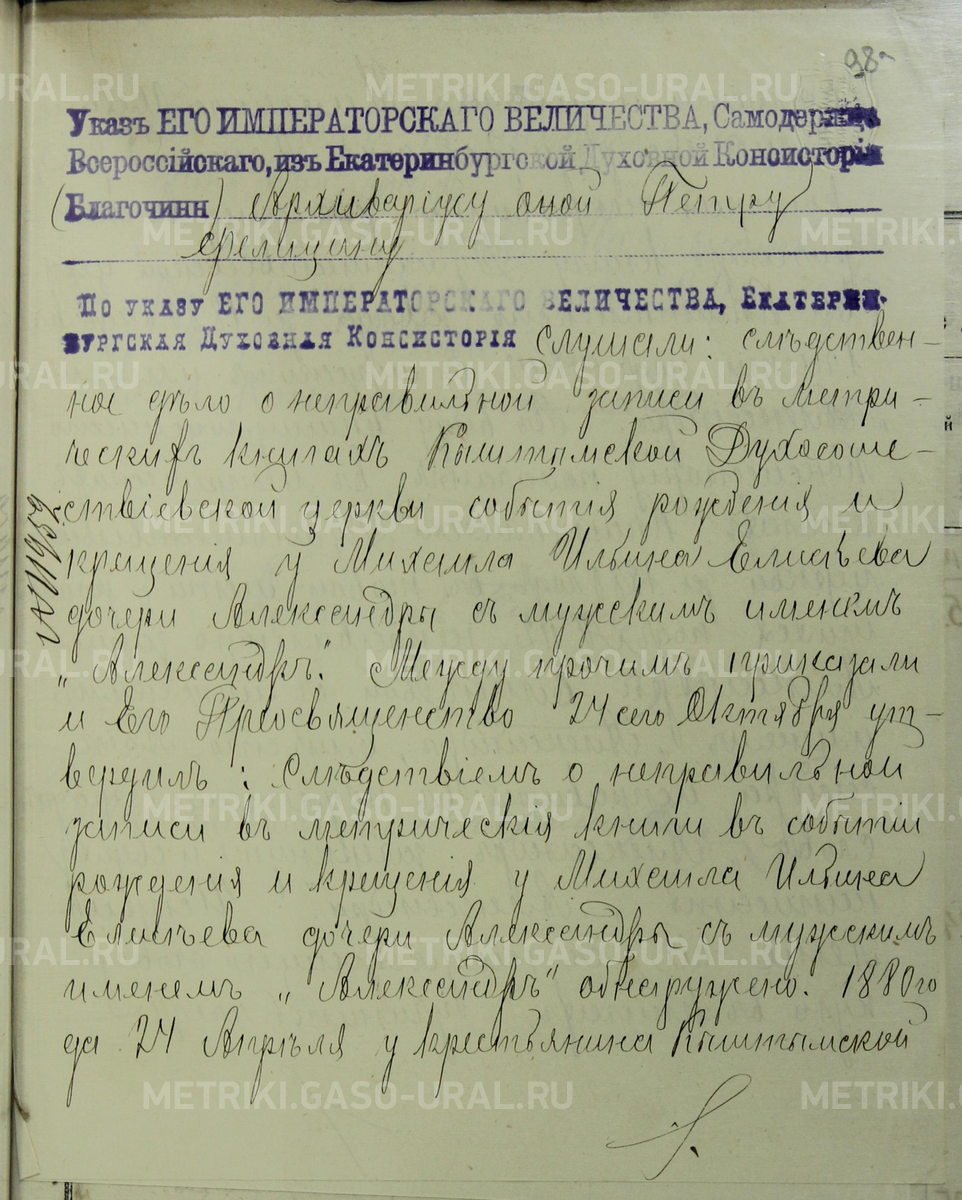 98
Указъ ЕГО ИМПЕРАТОРСКАГО ВЕЛИЧЕСТВА, Самодержца
Всероссійскаго, изъ Екатеринбургской Духовной Консисторіи
(Благочинн) Архиваріусу оной Петру
По указу ЕГО ИМПЕРАТОРСКАГО ВЕЛИЧЕСТВА, Екатерин-
бургская Духовная Консисторія слушали: слѣдствен-
ное дѣло о неправильной записи въ метри-
ческихъ книгахъ Кыштымской Духосоше-
ствіевской церкви событія рожденія и
крещенія у Михаила Ильина Елисѣева
дочери Александры съ мужскимъ именемъ
„Александръ". Между прочимъ приказали
и Его Преосвященство 24 сего Октября ут-
вердилъ: Слѣдствіемъ о неправильной
записи въ метрическія книги въ событіи
рожденія и крещенія у Михаила Ильина
Елисѣева дочери Александры съ мужскимъ
именемъ „Александръ" обнаружено. 1880 го-
да 24 Апрѣля у крестьянина Кыштымской
№ 11952
METRIKI.GASO-URAL.RU